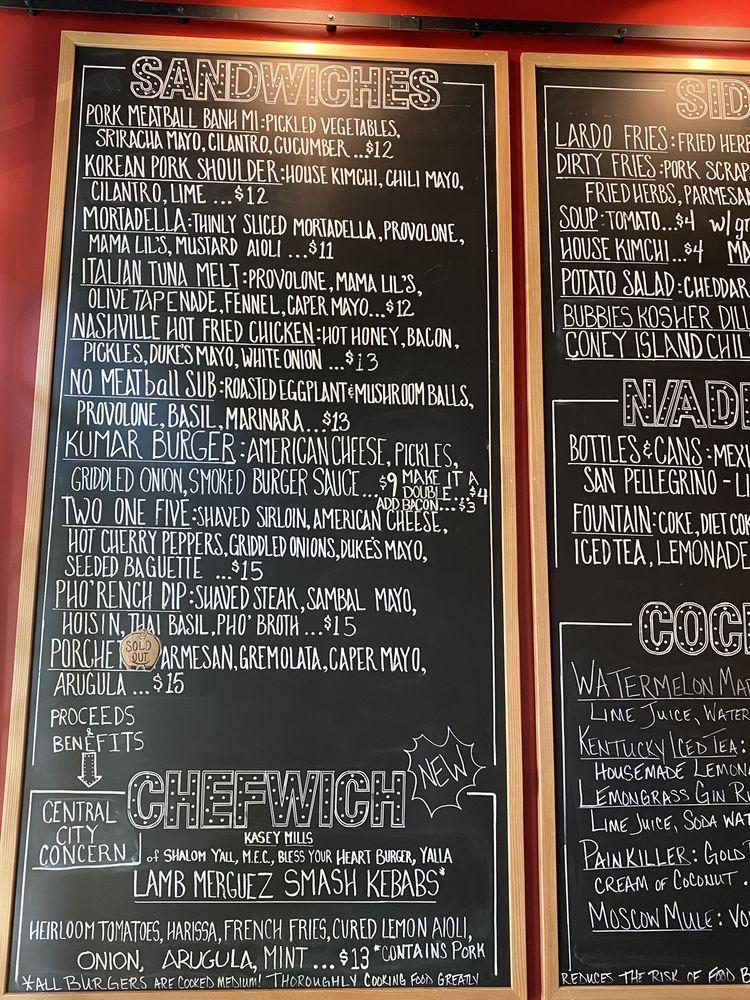 SANDWICHES
PORK MEATBALL BANH MI: PICKLED VEGETABLES,
SRIRACHA MAYO, CILANTRO, CUCUMBER ...$12
KOREAN PORK SHOULDER: HOUSE KIMCHI, CHILI MAYO,
CILANTRO, LIME ...$12
MORTADELLA: THINLY SLICED MORTADELLA, PROVOLONE,
MAMA LIL'S, MUSTARD AIOLI ...$11
ITALIAN TUNA MELT: PROVOLONE, MAMA LIL'S,
OLIVE TAPENADE, FENNEL, CAPER MAYO...$12
NASHVILLE HOT FRIED CHICKEN: HOT HONEY, BACON,
PICKLES, DUKE'S MAYO, WHITE ONION ...$13
NO MEATball SUB: ROASTED EGGPLANT & MUSHROOM BALLS,
PROVOLONE, BASIL, MARINARA...$13
KUMAR BURGER: AMERICAN CHEESE, PICKLES,
GRIDDLED ONION, SMOKED BURGER SAUCE ...$9 MAKE IT A
DOUBLE...$4
ADD BACON...$3
TWO ONE FIVE: SHAVED SIRLOIN, AMERICAN CHEESE,
HOT CHERRY PEPPERS, GRIDDLED ONIONS, DUKE'S MAYO,
SEEDED BAGUETTE ...$15
PHO'RENCH DIP: SHAVED STEAK, SAMBAL MAYO,
HOISIN, THAI BASIL, PHO' BROTH ...$15
PORCHE SOLD OUT ARMESAN, GREMOLATA, CAPER MAYO,
ARUGULA ...$15
PROCEEDS
BENEFITS
CENTRAL
CITY
CONCERN
CHEFWICH
NEW
KASEY MILLS
of SHALOM Y'ALL, M.E.C., BLESS YOUR HEART BURGER, YALLA
LAMB MERGUEZ SMASH KEBABS*
HEIRLOOM TOMATOES, HARISSA, FRENCH FRIES, CURED LEMON AIOLI,
ONION, ARUGULA, MINT ...$13 *CONTAINS PORK
*ALL BURGERS ARE COOKED MEDIUM! THOROUGHLY COOKING FOOD GREATLY
SID
LARDO FRIES: FRIED HERB
DIRTY FRIES: PORK SCRAP
FRIED HERBS, PARMESAN
SOUP: TOMATO...$4 w/ gr
HOUSE KIMCHI...$4 MA
POTATO SALAD: CHEDDAR
BUBBIES KOSHER DILL
CONEY ISLAND CHIL
N/A DR
BOTTLES & CANS: MEXI
SAN PELLEGRINO - LI
FOUNTAIN: COKE, DIET COK
ICED TEA, LEMONADE
COC
WATERMELON MAR
LIME JUICE, WATER
KENTUCKY ICED TEA:
HOUSEMADE LEMON
LEMONGRASS GIN RI
LIME JUICE, SODA WAT
PAINKILLER: GOLD
CREAM OF COCONUT .
MOSCOW MULE: VO
REDUCES THE RISK OF FOOD B